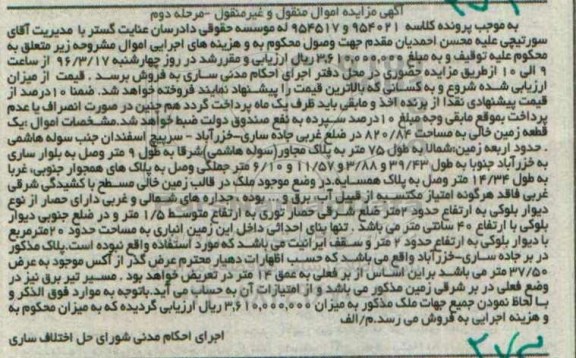 آگهی مزایده اموال منقول و غیرمنقول -مرحله دوم
به موجب پرونده کلاسه ۹۵۴۰۲۱ و ۹۵۴۵۱۷ له موسسه حقوقی دادرسان عنایت گستر با مدیریت آقای
سورتیچی علیه محسن احمدیان مقدم جهت وصول محکوم به و هزینه های اجرایی اموال مشروحه زیر متعلق به
محکوم علیه توقیف و به مبلغ ۳,۶۱۰,۰۰۰,۰۰۰ ریال ارزیابی و مقرر شد در روز چهارشنبه ۹۶/۳/۱۷ از ساعت
۹ الی ۱۰ از طریق مزایده حضوری در محل دفتر اجرای احکام مدنی ساری به فروش برسد . قیمت از میزان
ارزیابی شده شروع و به کسانی که بالاترین قیمت را پیشنهاد نمایند فروخته خواهد شد. ضمنا ۱۰درصد از
قیمت پیشنهادی نقدا از برنده اخذ و مابقی باید ظرف یک ماه پرداخت گردد هم چنین در صورت انصراف یا عدم
پرداخت بموقع مابقی وجه مبلغ ۱۰درصد سپرده به نفع صندوق دولت ضبط خواهد شد.مشخصات اموال :یک
قطعه زمین خالی به مساحت ۸۲۰/۸۴ در ضلع غربی جاده ساری-خزرآباد - سرپیچ اسفندان جنب سوله هاشمی
. حدود اربعه زمین:شمالا به طول ۷۵ متر به پلاک مجاور(سوله هاشمی)شرقا به طول ۹ متر وصل به بلوار ساری
به خزرآباد جنوبا به طول ۳۹/۴۳ و ۳/۸۸ و ۱۱/۵۷ و ۶/۱۰ متر جملگی وصل به پلاک های همجوار جنوبی، غربا
به طول ۱۴/۳۴ متر وصل به پلاک همسایه.در وضع موجود ملک در قالب زمین خالی مسطح با کشیدگی شرقی
غربی فاقد هرگونه امتیاز مکتسبه از قبیل آب برق و ... بوده . جداره های شمالی و غربی دارای حصار از نوع
دیوار بلوکی به ارتفاع حدود ۲متر ضلع شرقی حصار توری به ارتفاع متوسط ۱/۵ متر و در ضلع جنوبی دیوار
بلوکی با ارتفاع ۴۰ سانتی متر می باشد . تنها بنای احداثی داخل این زمین انباری به مساحت حدود ۲۰مترمربع
با دیوار بلوکی به ارتفاع حدود ۲ متر و سقف ایرانیت می باشد که مورد استفاده واقع نبوده است.پلاک مذکور
در بر جاده ساری-خزرآباد واقع می باشد که حسب اظهارات دهیار محترم عرض گذر از آکس موجود به عرض
۳۷/۵۰ متر می باشد بر این اساس از بر فعلی به عمق ۱۴ متر در تعریض خواهد بود . مسیر تیر برق نیز در
وضع فعلی در بر شرقی زمین مذکور می باشد و از امتیازات آن به حساب می آید.باتوجه به موارد فوق الذکر و
با لحاظ نمودن جمیع جهات ملک مذکور به میزان ۳,۶۱۰,۰۰۰,۰۰۰ ریال ارزیابی گردیده که به میزان محکوم به
و هزینه اجرایی به فروش می رسد.م/الف
اجرای احکام مدنی شورای حل اختلاف ساری